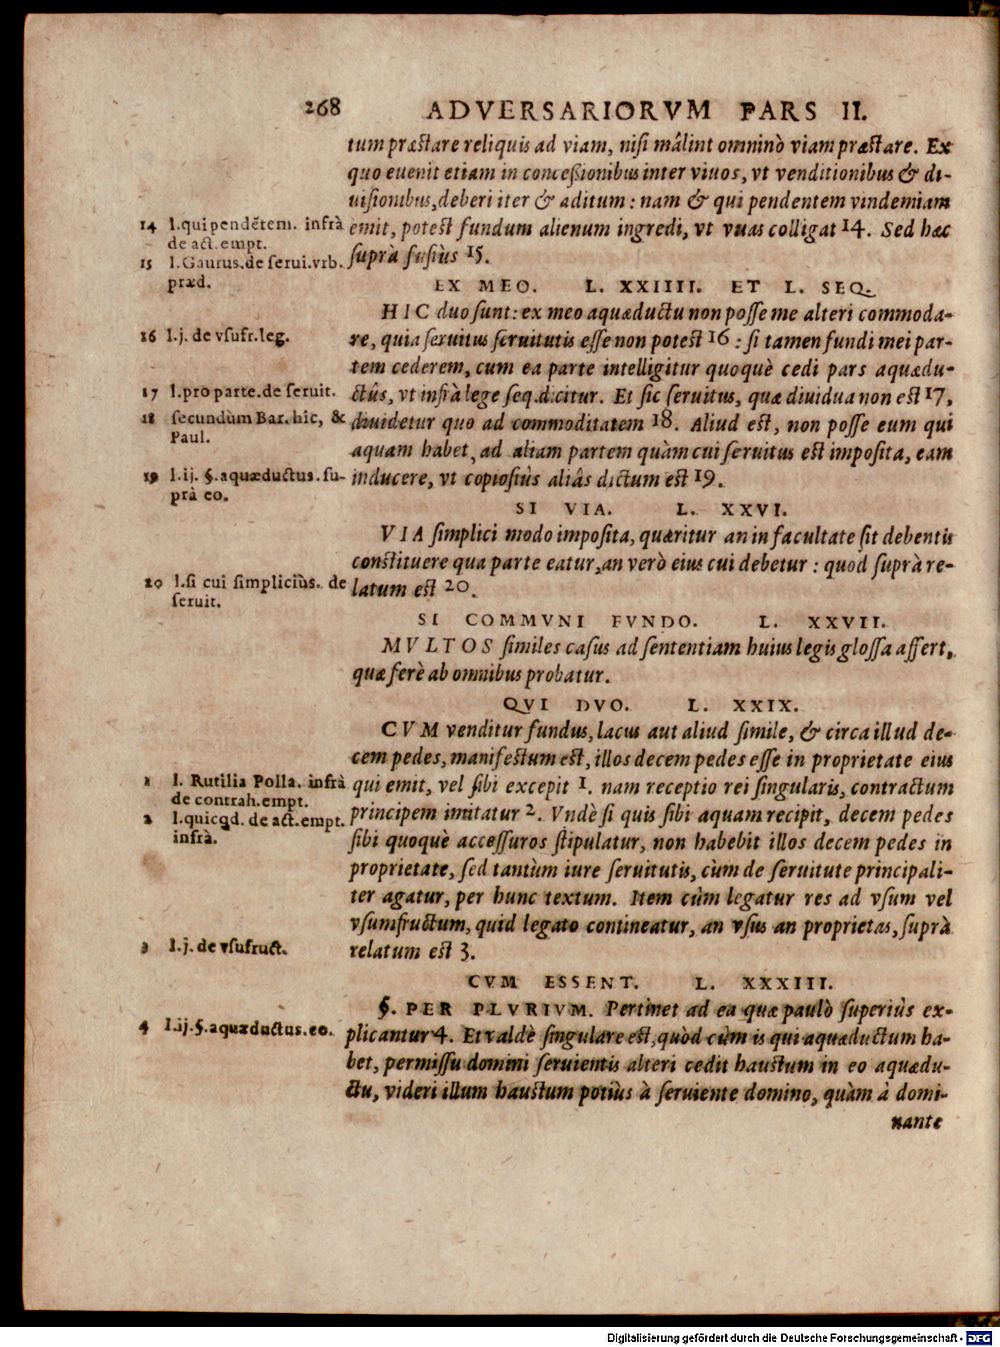 268 ADVERSARIORVM PARS II.
tum præstare reliquis ad viam, nisi mâlint omninò viam præstare. Ex
quo euenit etiam in concessionibus inter viuos, vt venditionibus & di-
uisionibus, deberi iter & aditum: nam & qui pendentem vindemiam
14 l.qui pendẽtem. infrà
de act. empt.
emit, potest fundum alienum ingredi, vt vuas colligat 14. Sed hæc
15 l.Gaurus.de serui.vrb.
præd.
suprà fusiùs 15.
EX MEO. L. XXIIII. ET L. SEQ.
HIC duo sunt: ex meo aquæductu non posse me alteri commoda-
16 l.j. de vsufr.leg.
re, quia seruitus seruitutis esse non potest 16: si tamen fundi mei par-
tem cederem, cum ea parte intelligitur quoquè cedi pars aquædu-
17 l.pro parte.de seruit.
ctûs, vt infrà lege seq.dicitur. Et sic seruitus, quæ diuidua non est 17,
18 secundùm Bar. hic, &
Paul.
diuidetur quo ad commoditatem 18. Aliud est, non posse eum qui
aquam habet, ad aliam partem quàm cui seruitus est imposita, eam
19 l.ij. §.aquæductus.su-
prà eo.
inducere, vt copiosiùs aliâs dictum est 19.
SI VIA. L. XXVI.
VIA simplici modo imposita, quæritur an in facultate sit debentis
constituere qua parte eatur, an verò eius cui debetur: quod suprà re-
20 l.si cui simpliciùs. de
seruit.
latum est 20.
SI COMMVNI FVNDO. L. XXVII.
MVLTOS similes casus ad sententiam huius legis glossa affert,
quæ ferè ab omnibus probatur.
QVI DVO. L. XXIX.
CVM venditur fundus, lacus aut aliud simile, & circa illud de-
cem pedes, manifestum est, illos decem pedes esse in proprietate eius
1 l. Rutilia Polla. infrà
de contrah.empt.
qui emit, vel sibi excepit 1. nam receptio rei singularis, contractum
2 l.quicqd. de act.empt.
infrà.
principem imitatur 2. Vndè si quis sibi aquam recipit, decem pedes
sibi quoquè accessuros stipulatur, non habebit illos decem pedes in
proprietate, sed tantùm iure seruitutis, cùm de seruitute principali-
ter agatur, per hunc textum. Item cùm legatur res ad vsum vel
vsumfructum, quid legato contineatur, an vsus an proprietas, suprà
3 l.j. de vsufruct.
relatum est 3.
CVM ESSENT. L. XXXIII.
§. PER PLVRIVM. Pertinet ad ea quæ paulò superiùs ex-
4 l.ij.§.aquæductus.eo.
plicantur 4. Et valdè singulare est, quòd cùm is qui aquæductum ha-
bet, permissu domini seruientis alteri cedit haustum in eo aquædu-
ctu, videri illum haustum potiùs à seruiente domino, quàm à domi-
nante
Digitalisierung gefördert durch die Deutsche Forschungsgemeinschaft - DFG